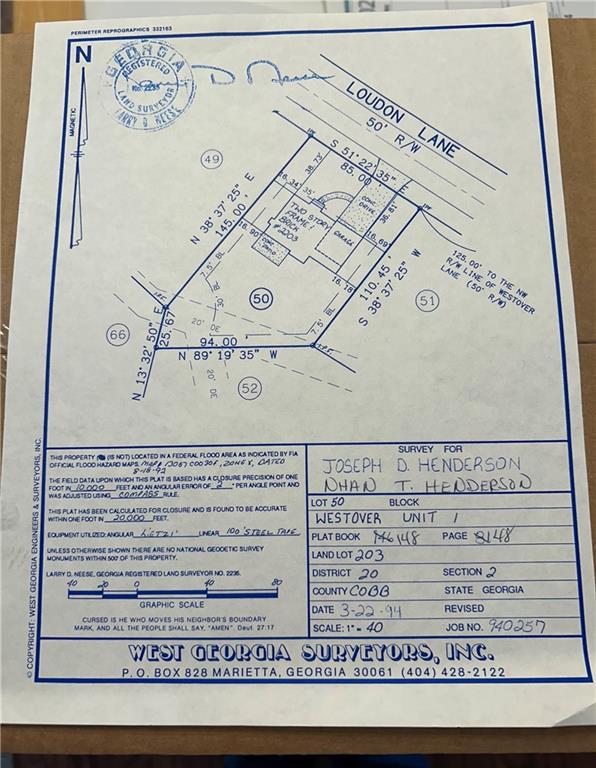 PERIMETER REPROGRAPHICS 332163
N
MAGNETIC
GEORGIA
REGISTERED
No. 2235
LAND SURVEYOR
LARRY D. NEESE
D Neese
LOUDON LANE
50' R/W
49
S 51° 22' 35" E
85.00'
N 38° 37' 25" E
145.00'
38.73'
16.34'
35'
CONC. DRIVE
36.81
TWO STORY
FRAME &
BRICK
#2003
GARAGE
16.69
16.90
CONC. PATIO
16.18
110.45'
S 38° 37' 25" W
125.00' TO THE NW
R/W LINE OF WESTOVER
LANE (50' R/W)
51
7.5' BL
30' BL
50
7.5' BL
20' DE
66
25.67'
N 13° 32' 50" E
94.00
N 89° 19' 35" W
20' DE
52
THIS PROPERTY (IS NOT) LOCATED IN A FEDERAL FLOOD AREA AS INDICATED BY FIA
OFFICIAL FLOOD HAZARD MAPS. MAP# 13067 C0030F, ZONE X, DATED
8-18-92
THE FIELD DATA UPON WHICH THIS PLAT IS BASED HAS A CLOSURE PRECISION OF ONE
FOOT IN 10,000 FEET AND AN ANGULAR ERROR OF 2 " PER ANGLE POINT AND
WAS ADJUSTED USING COMPASS RULE.
THIS PLAT HAS BEEN CALCULATED FOR CLOSURE AND IS FOUND TO BE ACCURATE
WITHIN ONE FOOT IN 20,000 FEET.
EQUIPMENT UTILIZED: ANGULAR LIETZ LINEAR 100' STEEL TAPE
UNLESS OTHERWISE SHOWN THERE ARE NO NATIONAL GEODETIC SURVEY
MONUMENTS WITHIN 500' OF THIS PROPERTY.
LARRY D. NEESE, GEORGIA REGISTERED LAND SURVEYOR NO. 2235.
40 20 0 40 80
GRAPHIC SCALE
CURSED IS HE WHO MOVES HIS NEIGHBOR'S BOUNDARY
MARK, AND ALL THE PEOPLE SHALL SAY, "AMEN". Deut. 27:17
SURVEY FOR
JOSEPH D. HENDERSON
NHAN T. HENDERSON
LOT 50 BLOCK
WESTOVER UNIT 1
PLAT BOOK 148 PAGE 48
LAND LOT 203
DISTRICT 20 SECTION 2
COUNTY COBB STATE GEORGIA
DATE 3-22-94 REVISED
SCALE: 1" = 40 JOB NO. 940257
© COPYRIGHT: WEST GEORGIA ENGINEERS & SURVEYORS, INC.
WEST GEORGIA SURVEYORS, INC.
P.O. BOX 828 MARIETTA, GEORGIA 30061 (404) 428-2122